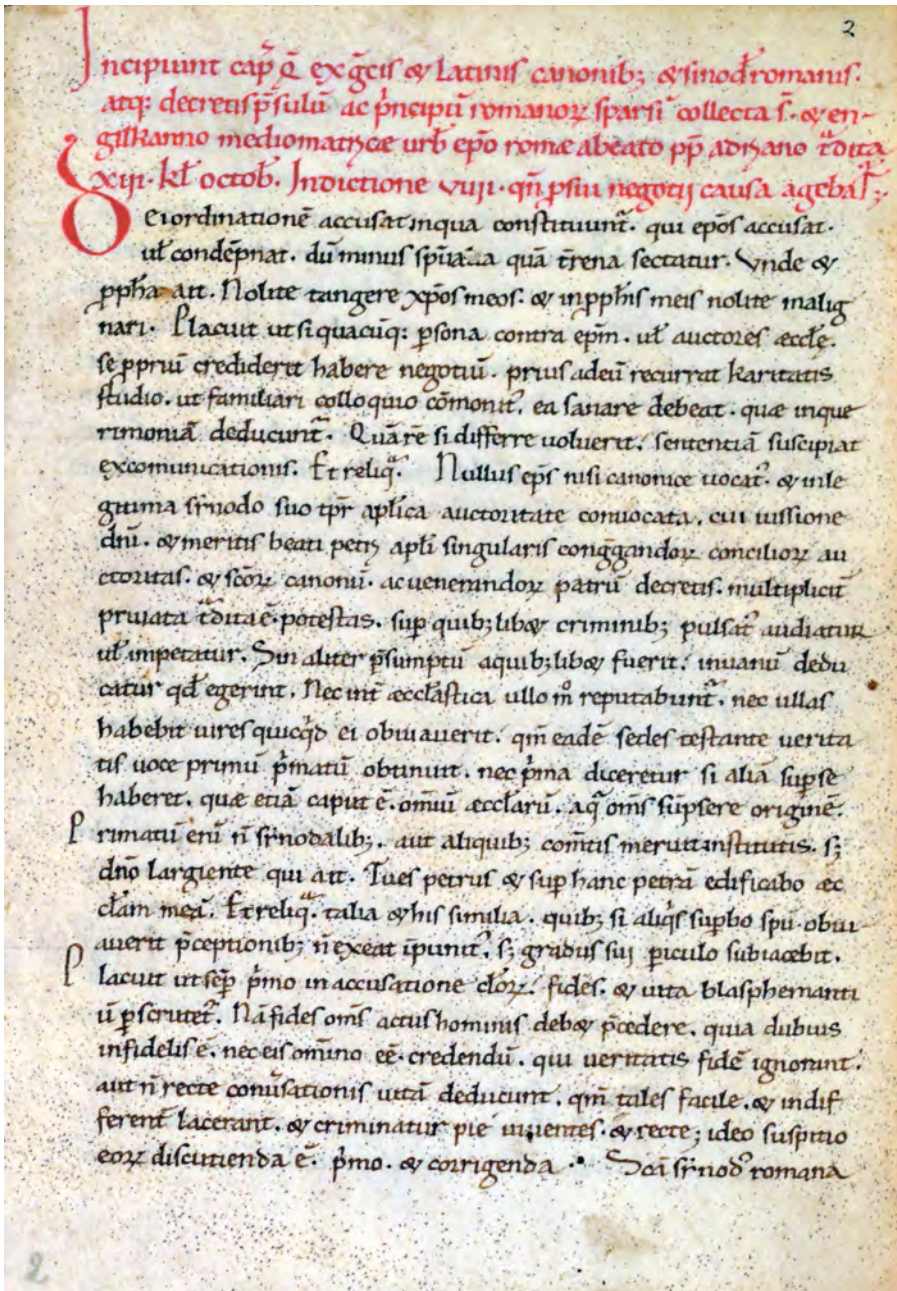 2
Incipiunt cap̃ q̃ ex g̃cis & Latinis canonib; & sinod̃ romanis.
atq: decretis p̃sulũ ac p̃ncipũ romanoꝝ sparsĩ collecta s̃. & en-
gilkanno mediomatricæ urb̃ ep̃o romæ a beato pp̃ adriano t̃dita
XIII. kl̃ octob̃. Indictione VIIII. qñ p̃ sui negotij causa agebat̃;
Dei ordinationẽ accusat in qua constituunt̃. qui ep̃os accusat.
ul̃ condẽpnat. dũ minus sp̃ualia quã t̃rena sectatur. Vnde &
ꝓph̃a ait. Nolite tangere xp̃os meos. & in ꝓph̃is meis nolite malig
nari. Placuit ut si quacũq: ꝑsona contra ep̃m. ul̃ auctores æccl̃e.
se ꝓpriũ crediderit habere negotiũ. prius ad eũ recurrat karitatis
studio. ut familiari colloquio cõmonit᾽. ea sanare debeat. quæ in que
rimoniã deducunt̃. Quã rẽ si differre uoluerit. sententiã suscipiat
excomunicationis. Et reliq̃. Nullus ep̃s nisi canonice uocat᾽. & in le
gitima sinodo suo tp̃r apl̃ica auctoritate conuocata. cui iussione
dñi. & meritis beati petri apl̃i singularis cong̃gandoꝝ concilioꝝ au
ctoritas. & sc̃oꝝ canonũ. ac uenerandoꝝ patrũ decretis. multiplicit̃
priuata t̃dita ẽ potestas. suꝑ quib;lib& criminib; pulsat᾽ audiatur
ul̃ impetatur. Sin aliter p̃sumptũ a quib;lib& fuerit. in uanũ dedu
catur qd̃ egerint. Nec int̃ æccl̃astica ullo m̊ reputabunt̃. nec ullas
habebit uires quicq̃d ei obuiauerit. qm̃ eadẽ sedes testante uerita
tis uoce primũ p̃matũ obtinuit. nec p̃ma diceretur si aliã suꝑ se
haberet. quæ etiã caput ẽ. omiũ æccl̃arũ. a q̃ om̃s sũpsere originẽ.
Primatũ enĩ ñ sinodalib;. aut aliquib; com̃tis meruit institutis. s;
dño largiente qui ait. Tu es petrus & suꝑ hanc petrã edificabo æc
cl̃am meã. Et reliq̃. talia & his similia. quib; si aliq̃s suꝑbo sp̃u obui
auerit p̃ceptionib; ñ exeat ĩpunit᾽. s; gradus sui ꝑiculo subiacebit.
Placuit ut sẽp p̃mo in accusatione cl̃oꝝ. fides. & uita blasphemanti
ũ ꝑscrutet̃. Nã fides om̃s actus hominis deb& p̃cedere. quia dubius
infidelis ẽ. nec eis omĩno eẽ. credendũ. qui ueritatis fidẽ ignorant.
aut ñ recte conũsationis uitã deducunt. qm̃ tales facile. & indif
ferent̃ lacerant. & criminatur pie uiuentes. & recte; ideo suspitio
eoꝝ discutienda ẽ. p̃mo. & corrigenda. Sc̃a sinod᾽ romana
2